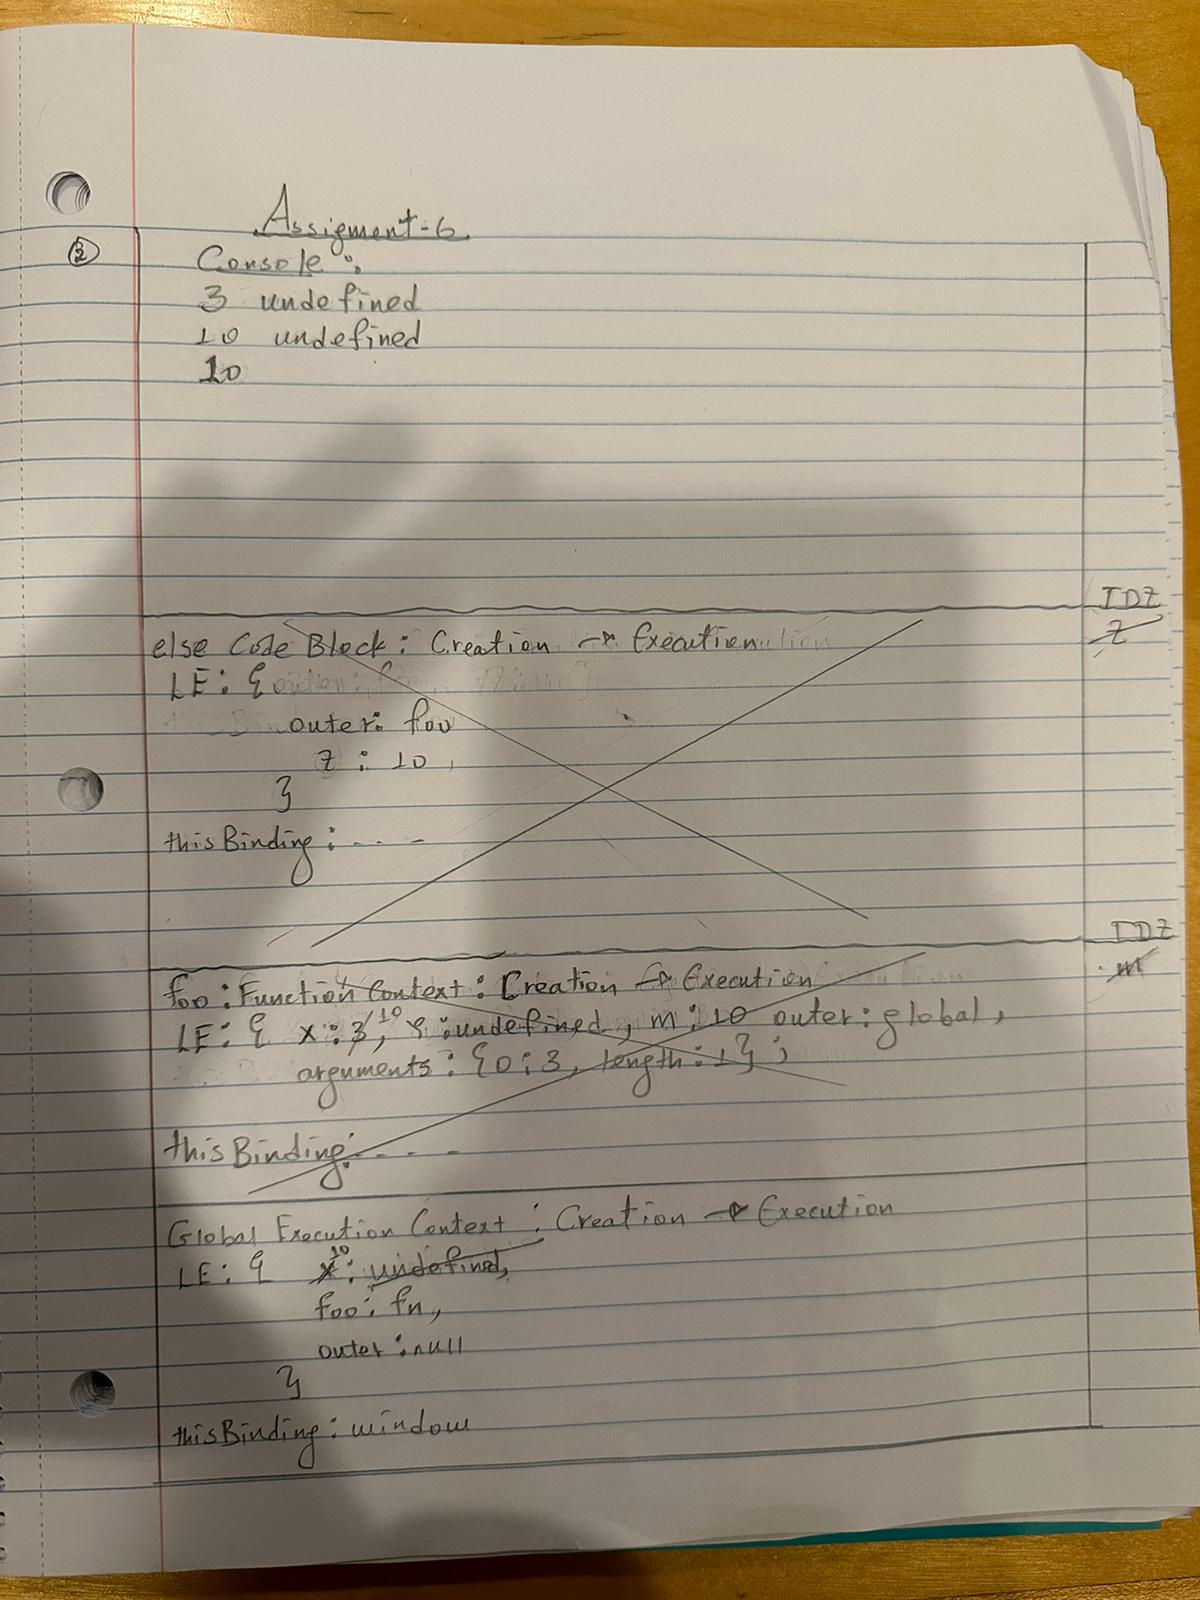 Assigment-6
② Console:
3 undefined
10 undefined
10
TDZ
z
else Code Block: Creation → Execution
LE: {
outer: foo
z : 10,
}
thisBinding: ----
TDZ
m
foo: Function Context: Creation → Execution
LE: { x: 3, 10 Y: undefined, m: 10 outer: global,
arguments: {0: 3, length: 1};
thisBinding: ----
Global Execution Context: Creation → Execution
LE: { x: 10 undefined,
foo: fn,
outer: null
}
thisBinding: window